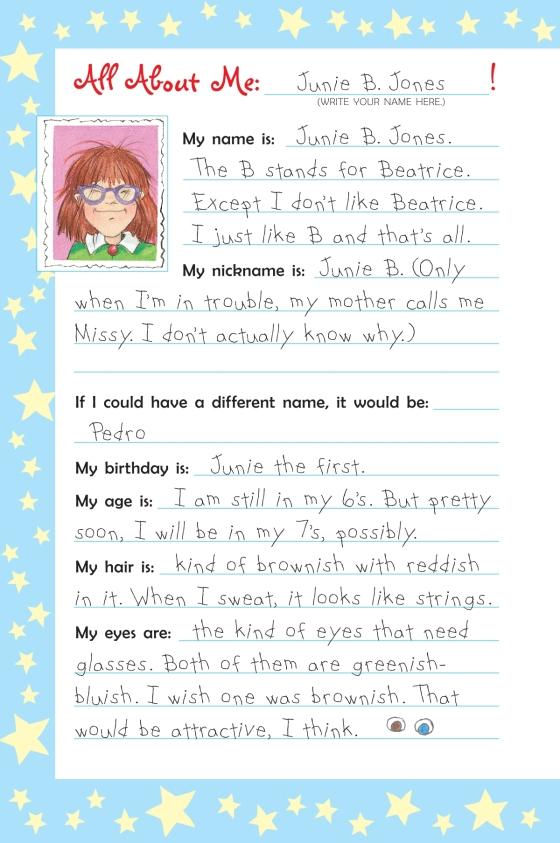 All About Me: Junie B. Jones !
(WRITE YOUR NAME HERE.)
My name is: Junie B. Jones.
The B stands for Beatrice.
Except I don't like Beatrice.
I just like B and that's all.
My nickname is: Junie B. (Only
when I'm in trouble, my mother calls me
Missy. I don't actually know why.)
If I could have a different name, it would be:
Pedro
My birthday is: Junie the first.
My age is: I am still in my 6's. But pretty
soon, I will be in my 7's, possibly.
My hair is: kind of brownish with reddish
in it. When I sweat, it looks like strings.
My eyes are: the kind of eyes that need
glasses. Both of them are greenish-
bluish. I wish one was brownish. That
would be attractive, I think.